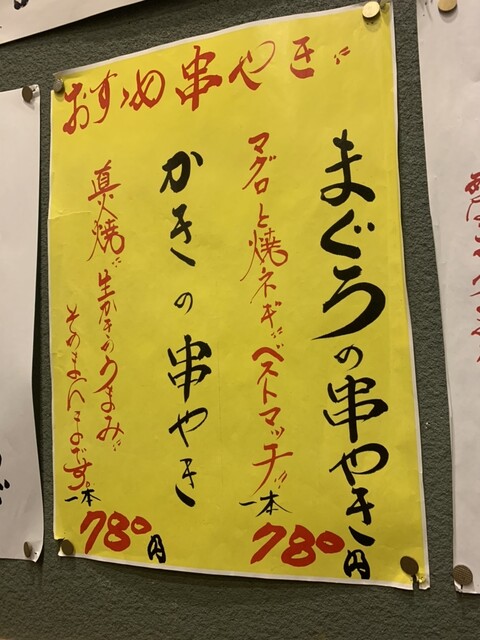 おすゝめ串やき〃
まぐろの串やき
マグロと焼ネギ〃ベストマッチ!!
一本
780円
かきの串やき
直火焼〃生かきのうまみ〃
そのまんまです。
一本
780円